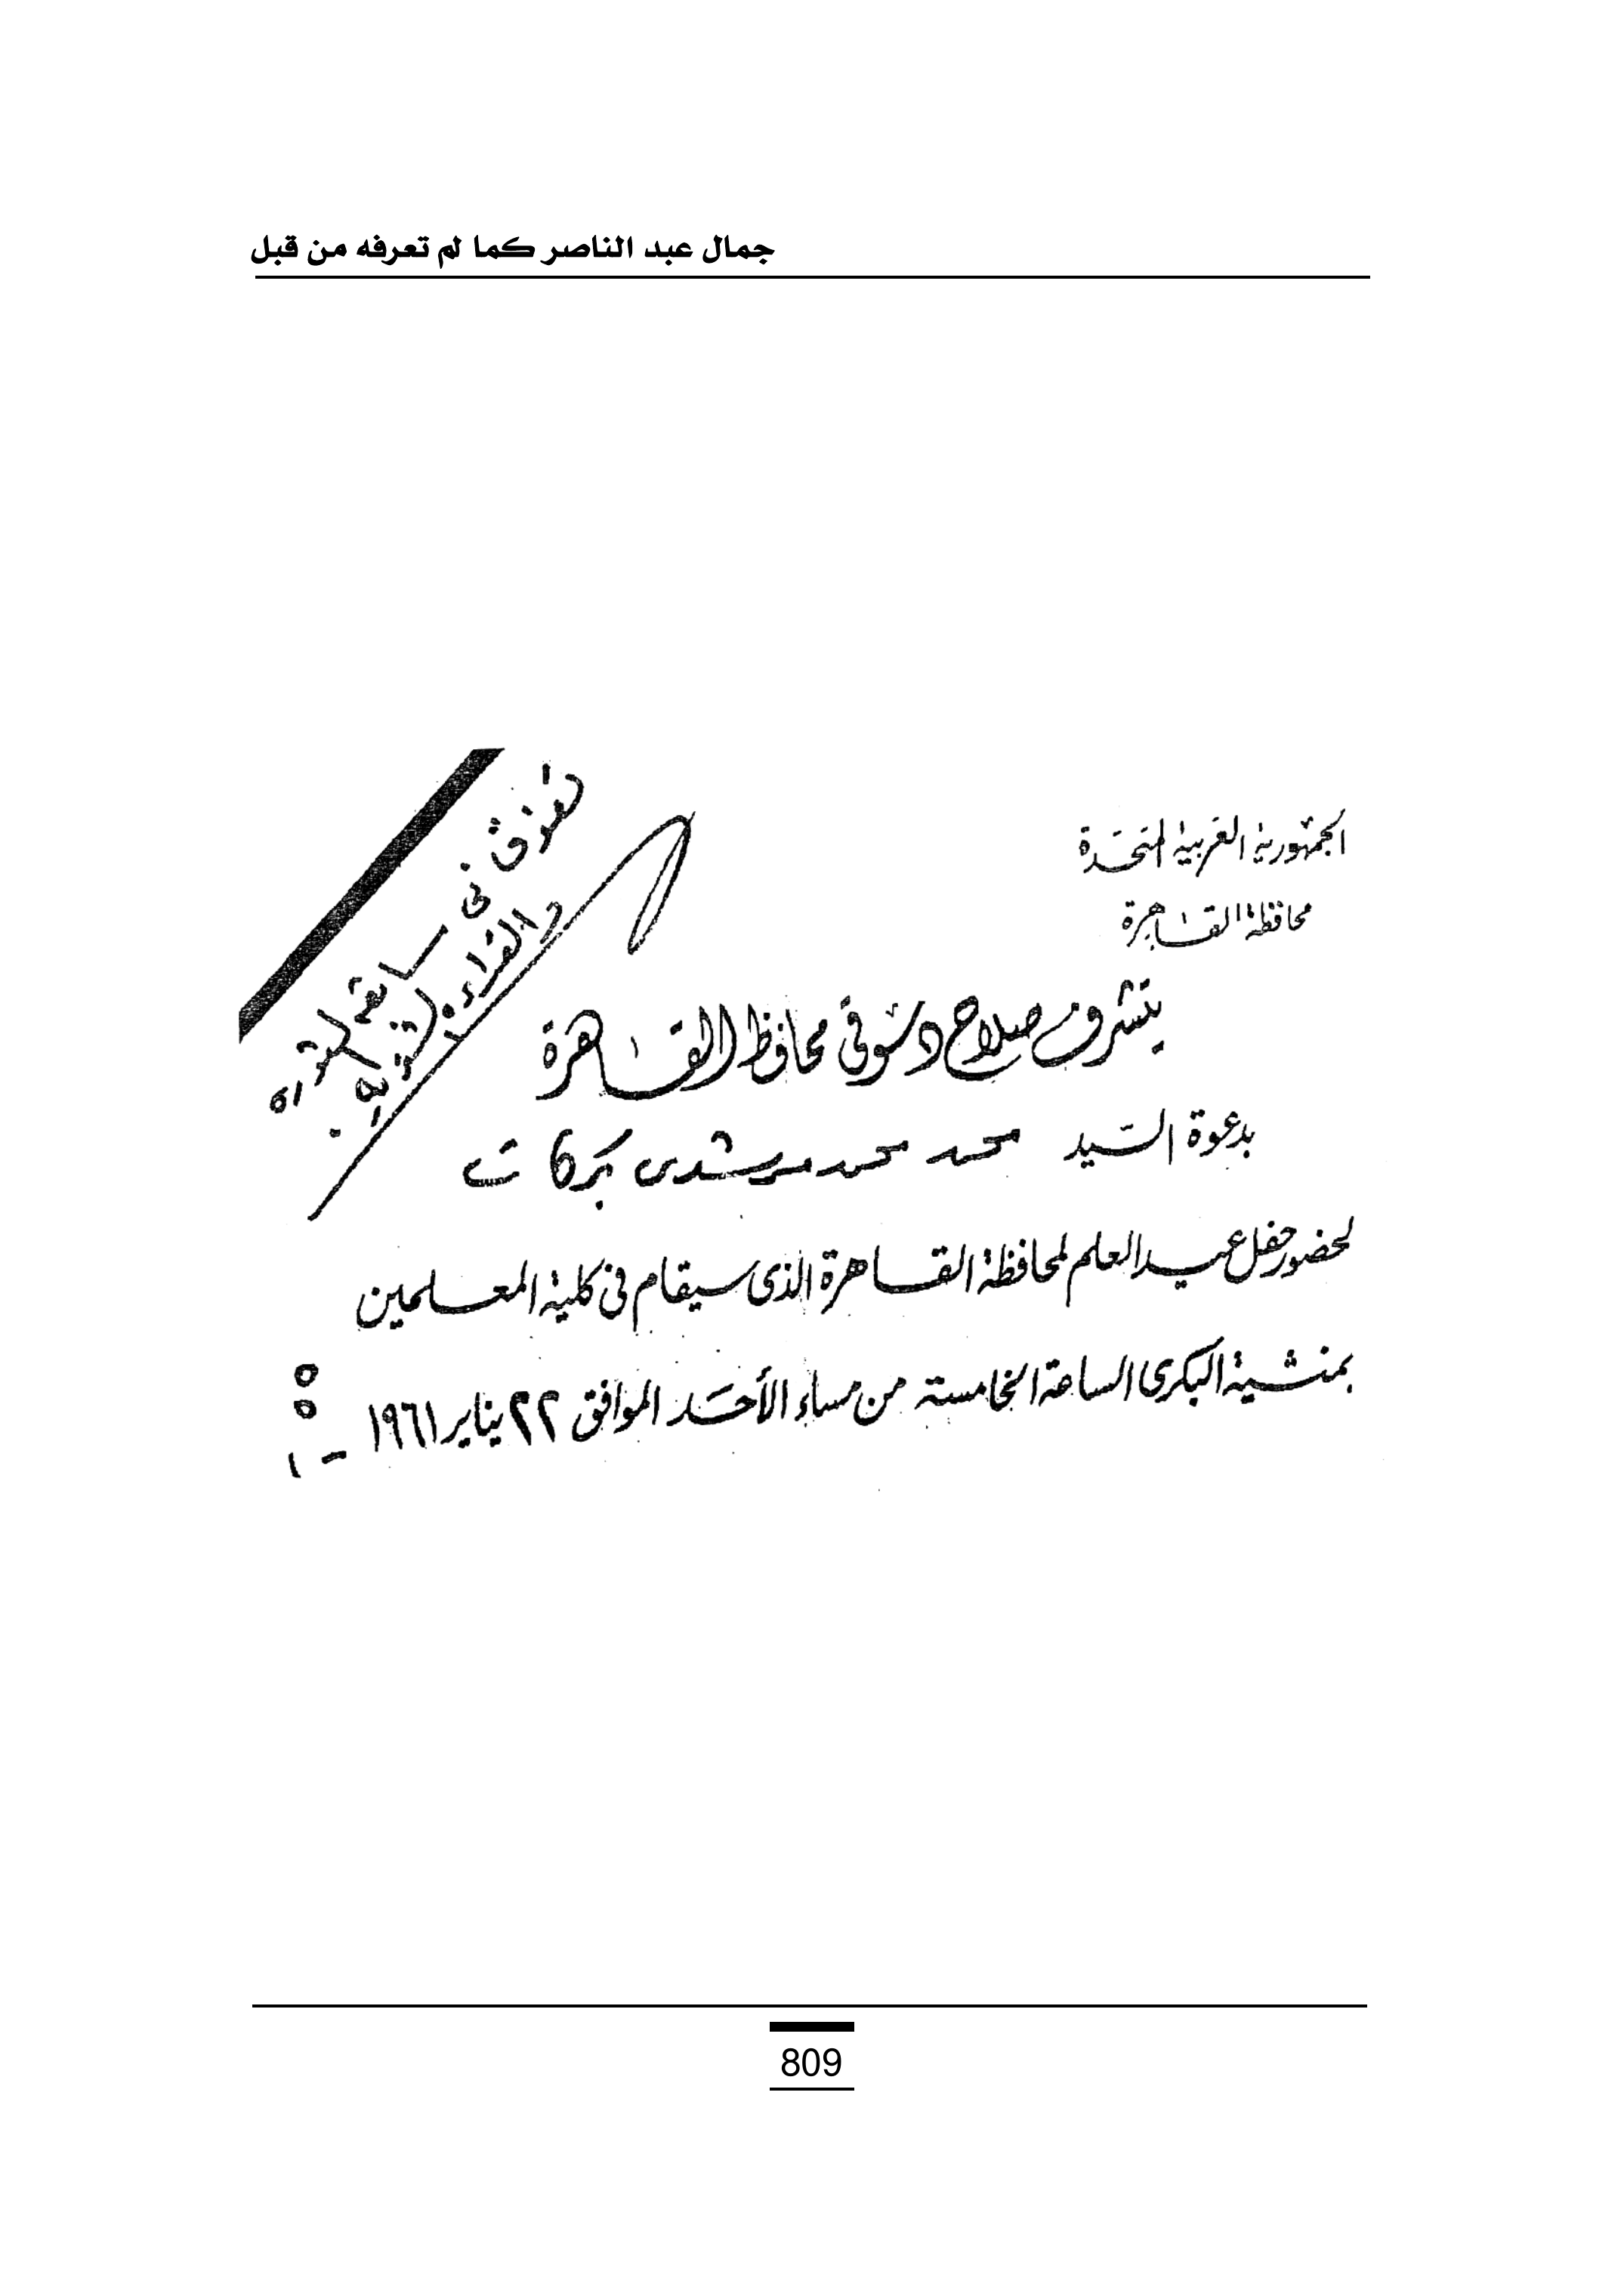 جمال عبد الناصر كما لم تعرفه من قبل
الجمهورية العربية المتحدة
محافظة القاهرة
يتشرف صلاح دسوقى محافظ القاهرة
بدعوة السيد محمد محمد مرشدى بركات
لحضور حفل عيد العلم لمحافظة القاهرة الذى سيقام فى كلية المعلمين
بمنشية البكرى الساعة الخامسة من مساء الأحد الموافق ٢٢ يناير ١٩٦١
تفوق فى
والقراءة
809